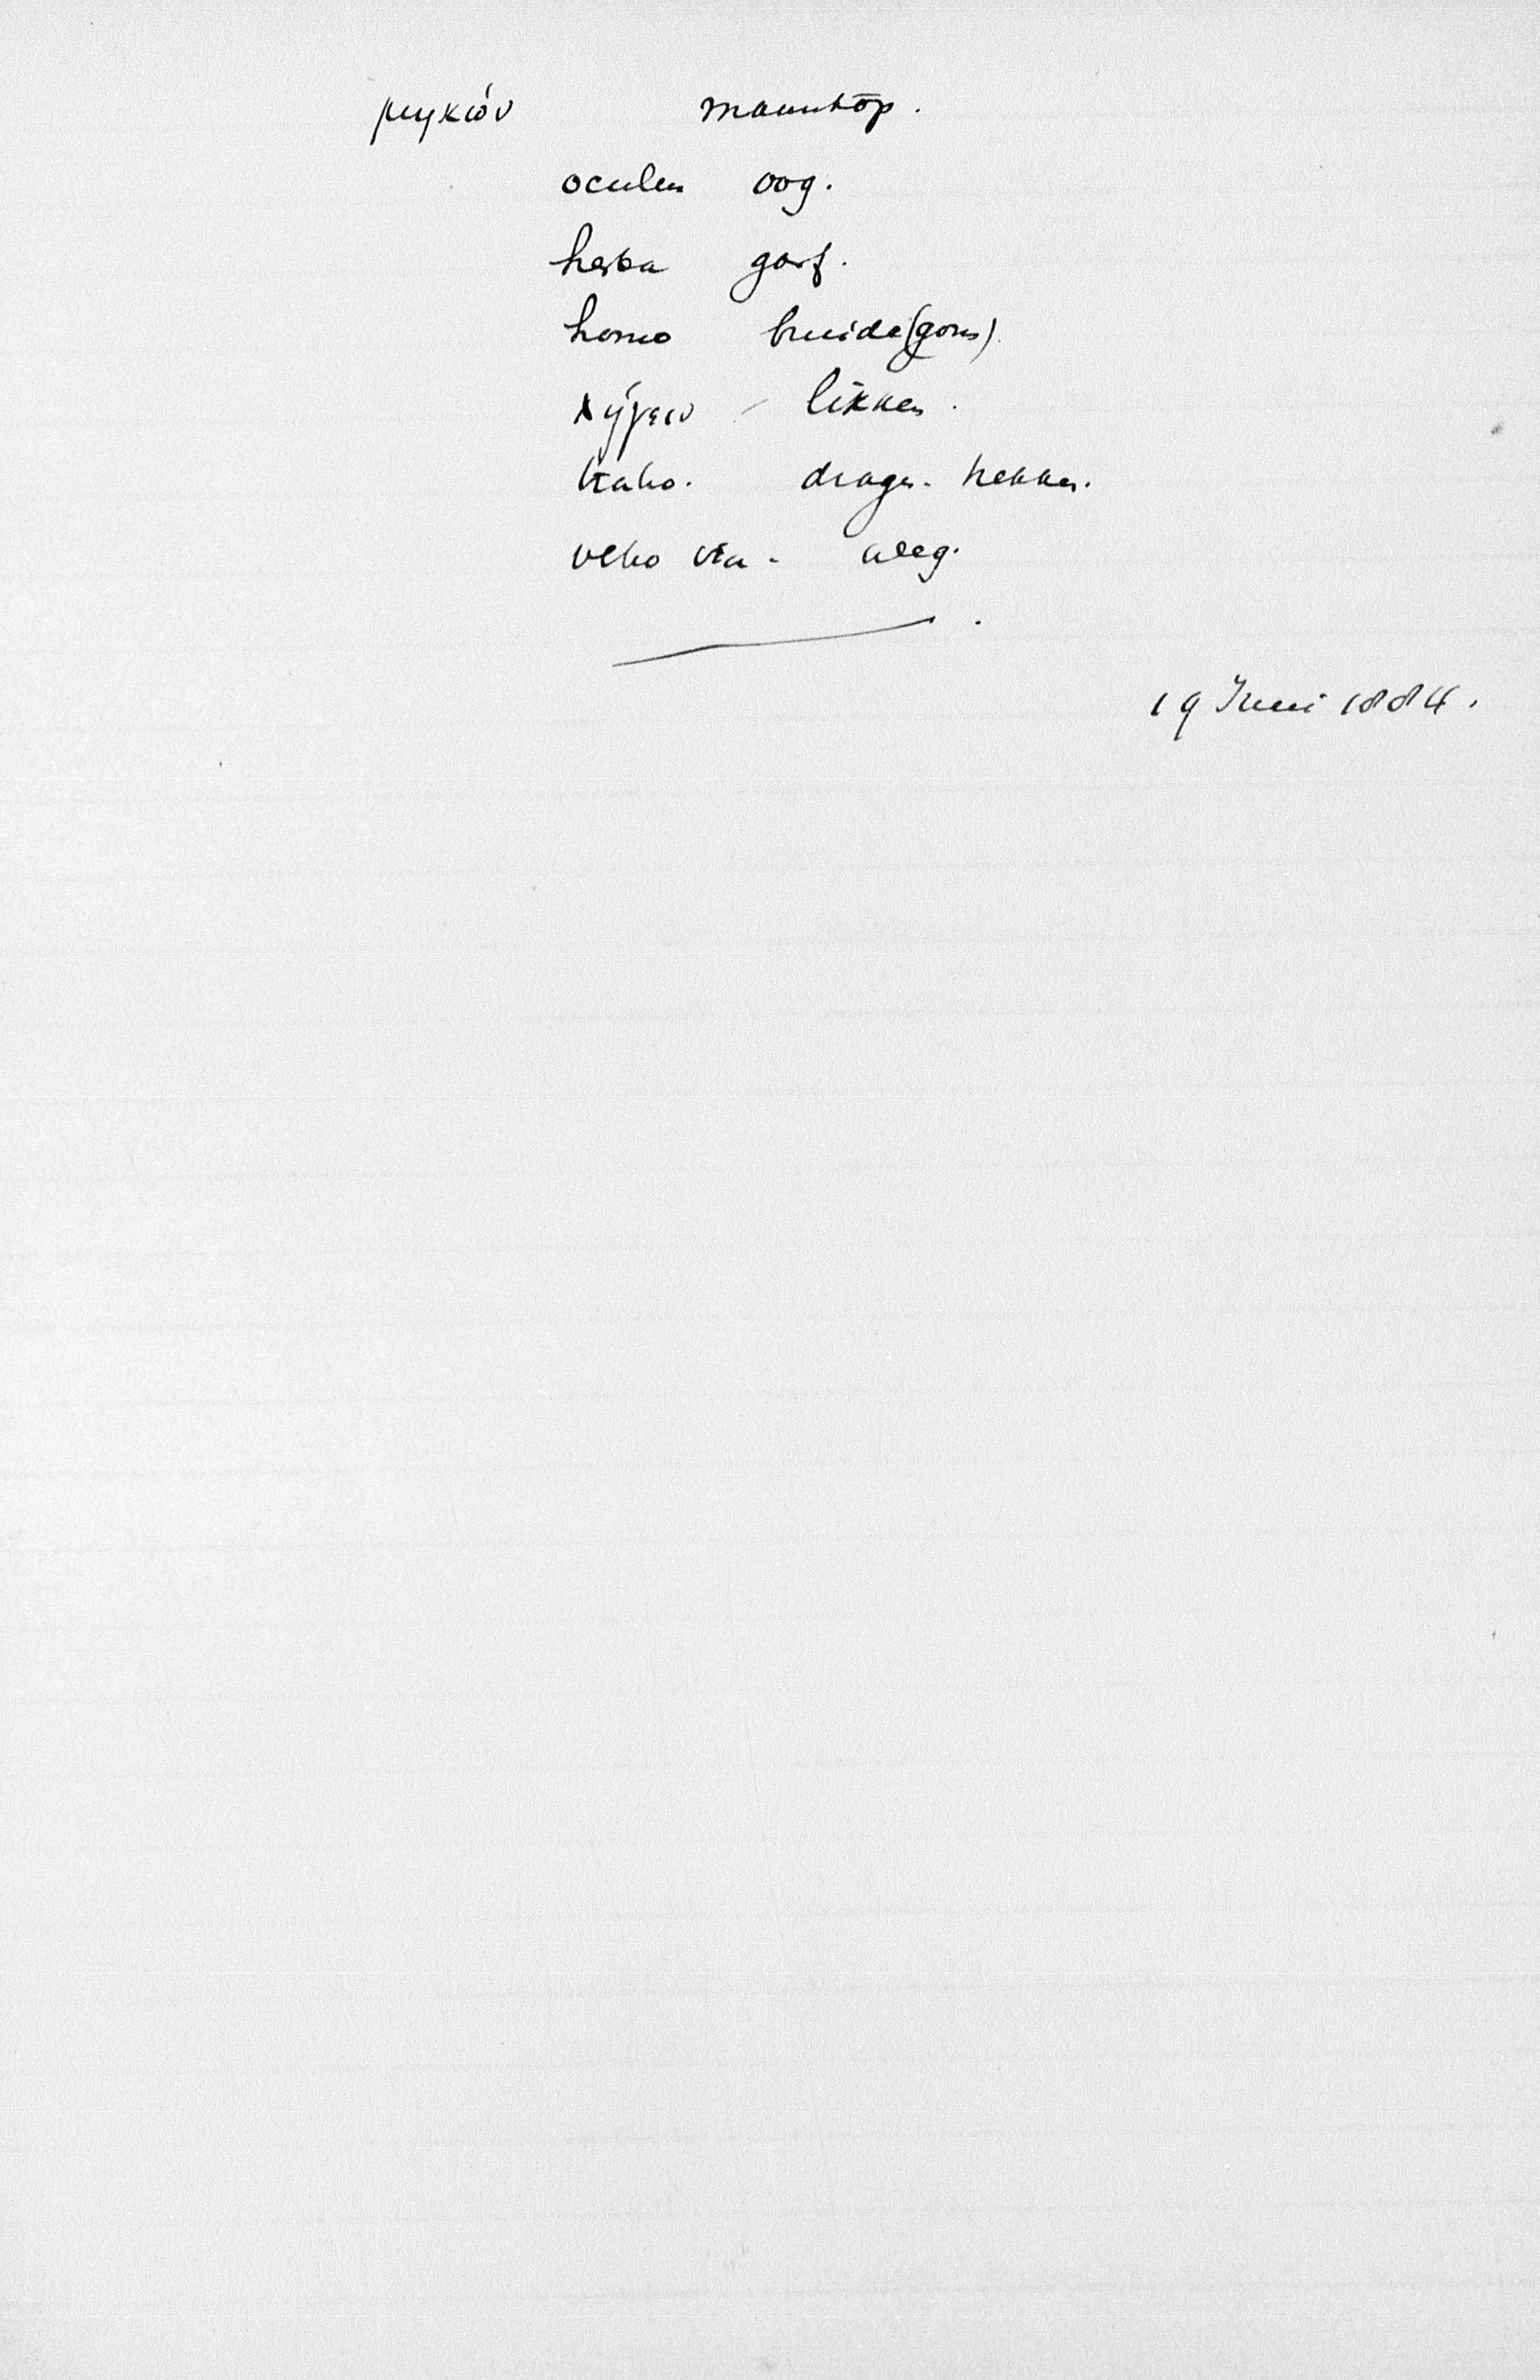 μηκών maankōp.
oculus oog.
herba garf.
homo bruide(goms).
λήγειν - likken.
traho. dragen. trekken.
veho via - weg.
19 Juni 1884.